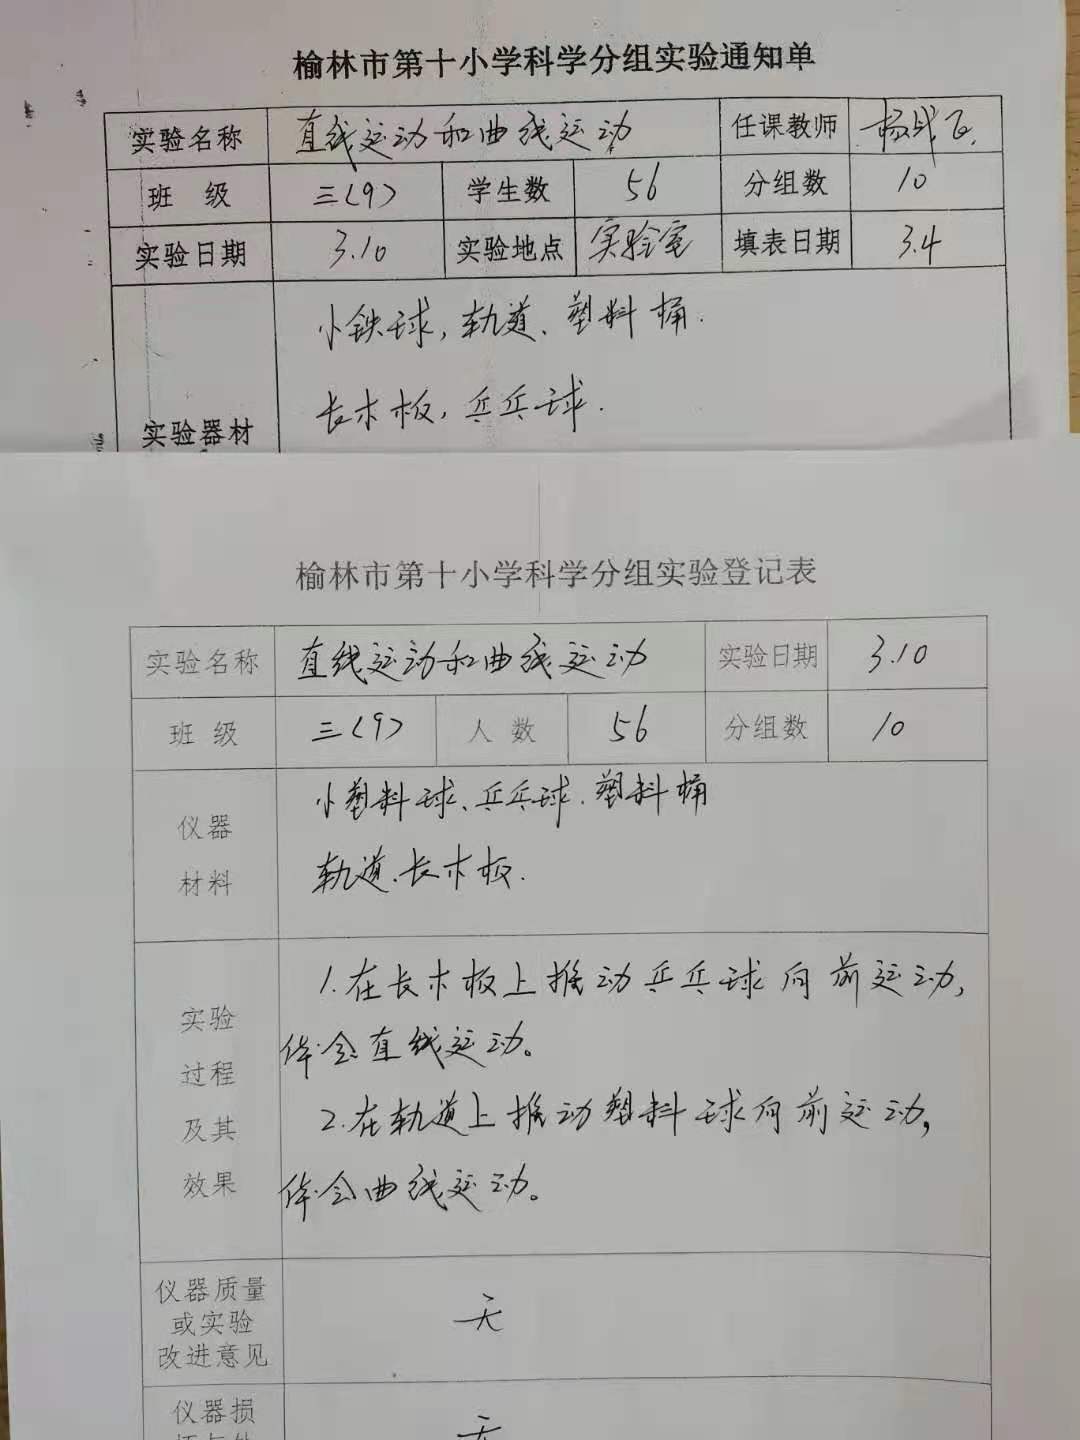 榆林市第十小学科学分组实验通知单
实验名称 直线运动和曲线运动 任课教师
班 级 三(9) 学生数 56 分组数 10
实验日期 3.10 实验地点 实验室 填表日期 3.4
小铁球,轨道、塑料桶.
长木板,乒乓球.
实验器材
榆林市第十小学科学分组实验登记表
实验名称 直线运动和曲线运动 实验日期 3.10
班 级 三(9) 人 数 56 分组数 10
小塑料球、乒乓球.塑料桶
仪器
轨道.长木板.
材料
1.在长木板上推动乒乓球向前运动,
实验
体会直线运动。
过程
2.在轨道上推动塑料球向前运动,
及其
体会曲线运动。
效果
仪器质量
或实验 无
改进意见
仪器损
无